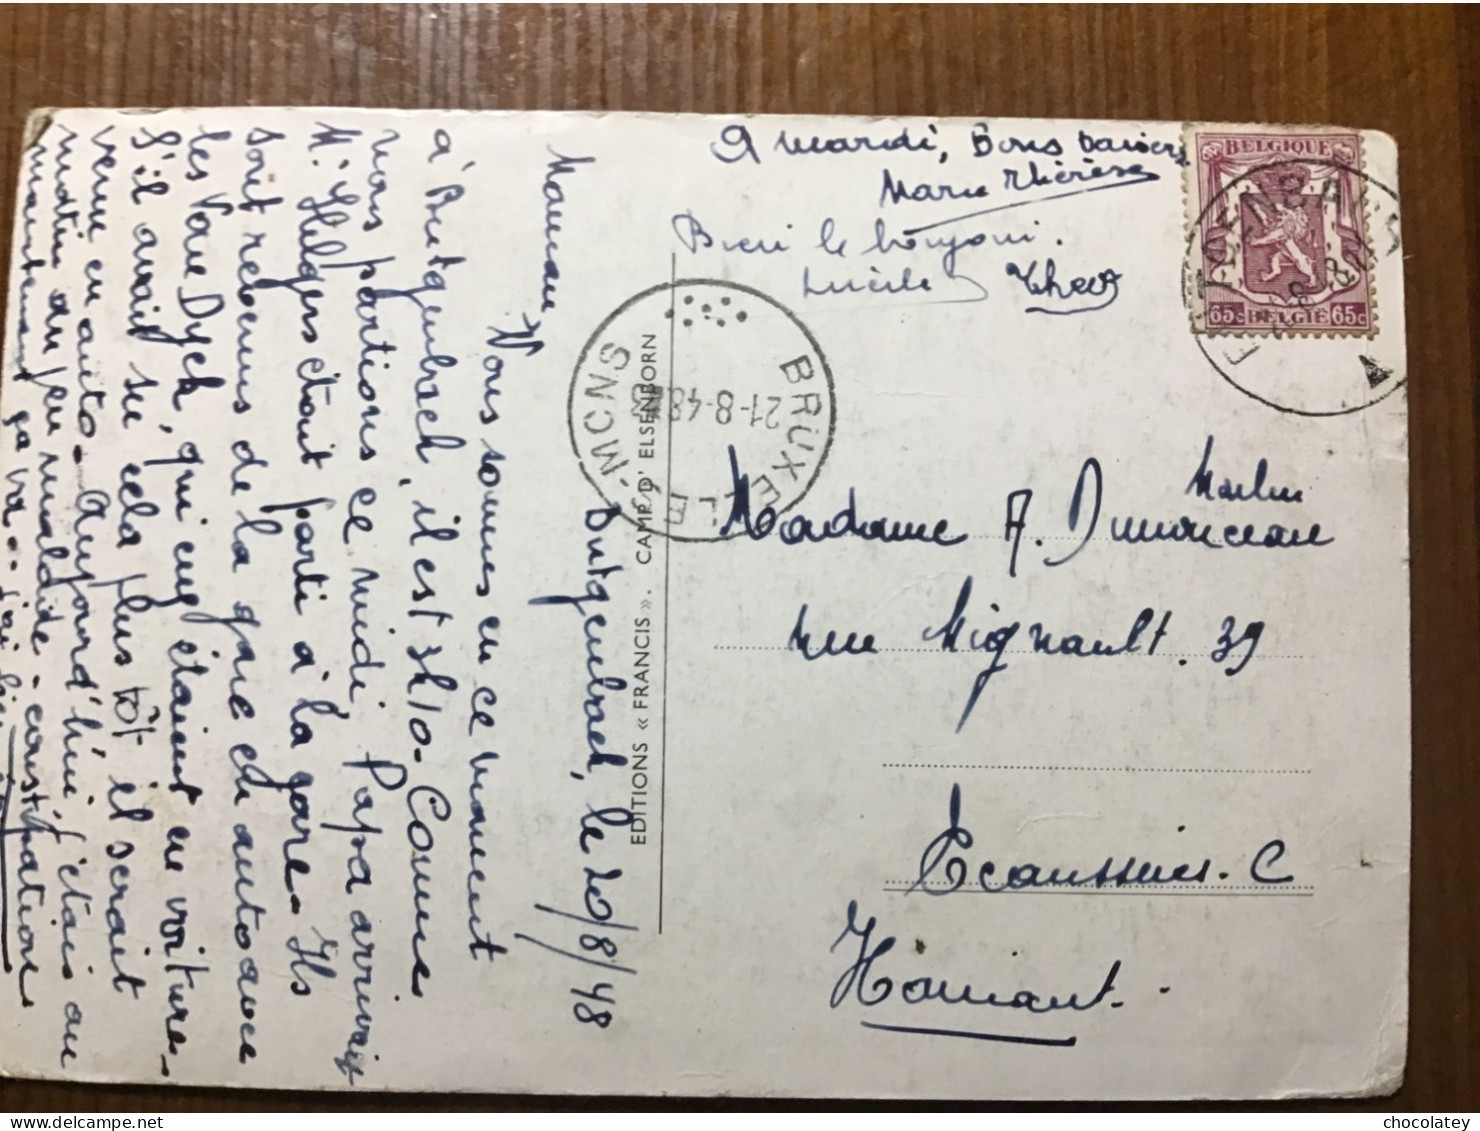 Butgenbach, le 20/8/48
Maman,
Nous sommes en ce moment
à Butgenbach, il est 3h10. Comme
nous partions ce midi, Papa arrivait
M. Hilgers était parti à la gare. Ils
sont revenus de la gare en auto avec
les Van Dyck, qui eux étaient en voiture.
S'il avait su cela plus tôt il serait
venu en auto. Aujourd'hui, j'étais au
matin un peu malade - constipation
maintenant ça va - j'ai bien
EDITIONS « FRANCIS ». CAMP D' ELSENBORN
BRUXELLES-MONS
21-8-48
à mardi, Bons baisers
Marie Thérèse
Bien le bonjour.
Lucile
BELGIQUE
65c BELGIË 65c
BUTGENBACH
Madame A. Dumonceau
rue Mignault. 39
Ecaussines. C
Hainaut.
chocolatey